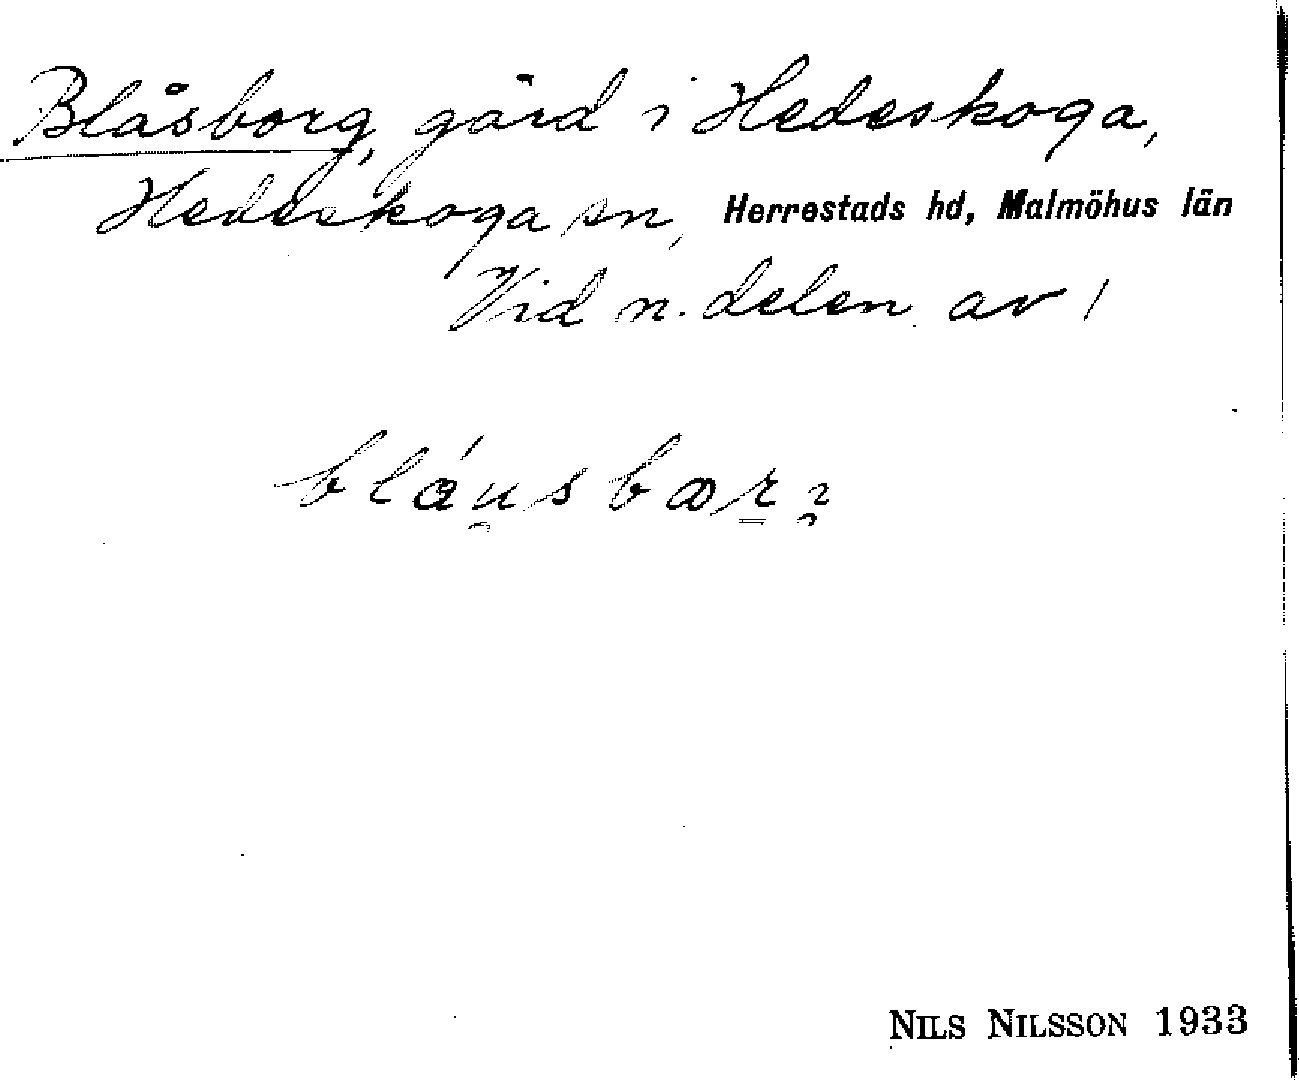 Blåsborg, gård i Hedeskoga,
Hedeskoga sn, Herrestads hd, Malmöhus län
Vid n. delen av /
NILS NILSSON 1933